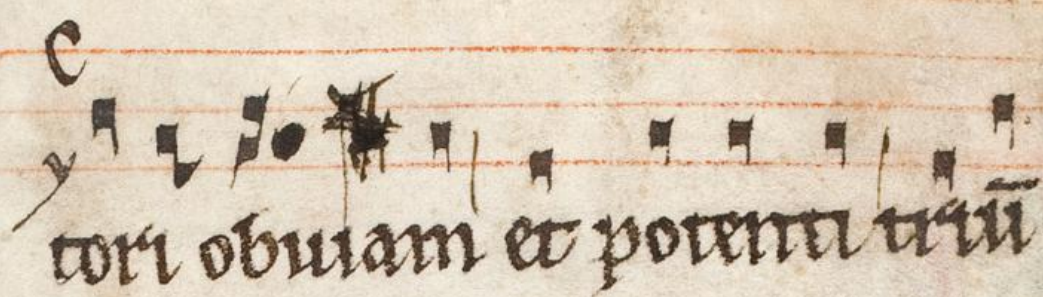 C
tori obuiam et potenti triū